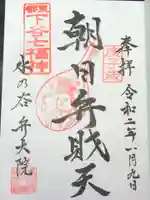 奉拝
令和二年一月九日
朝日弁財天
東都
下谷七福神
水の谷
弁天院